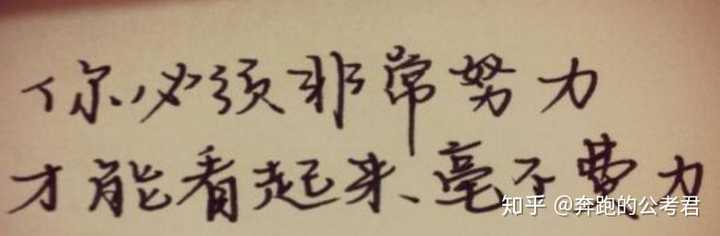 你必须非常努力
才能看起来、毫不费力
知乎 @奔跑的公考君